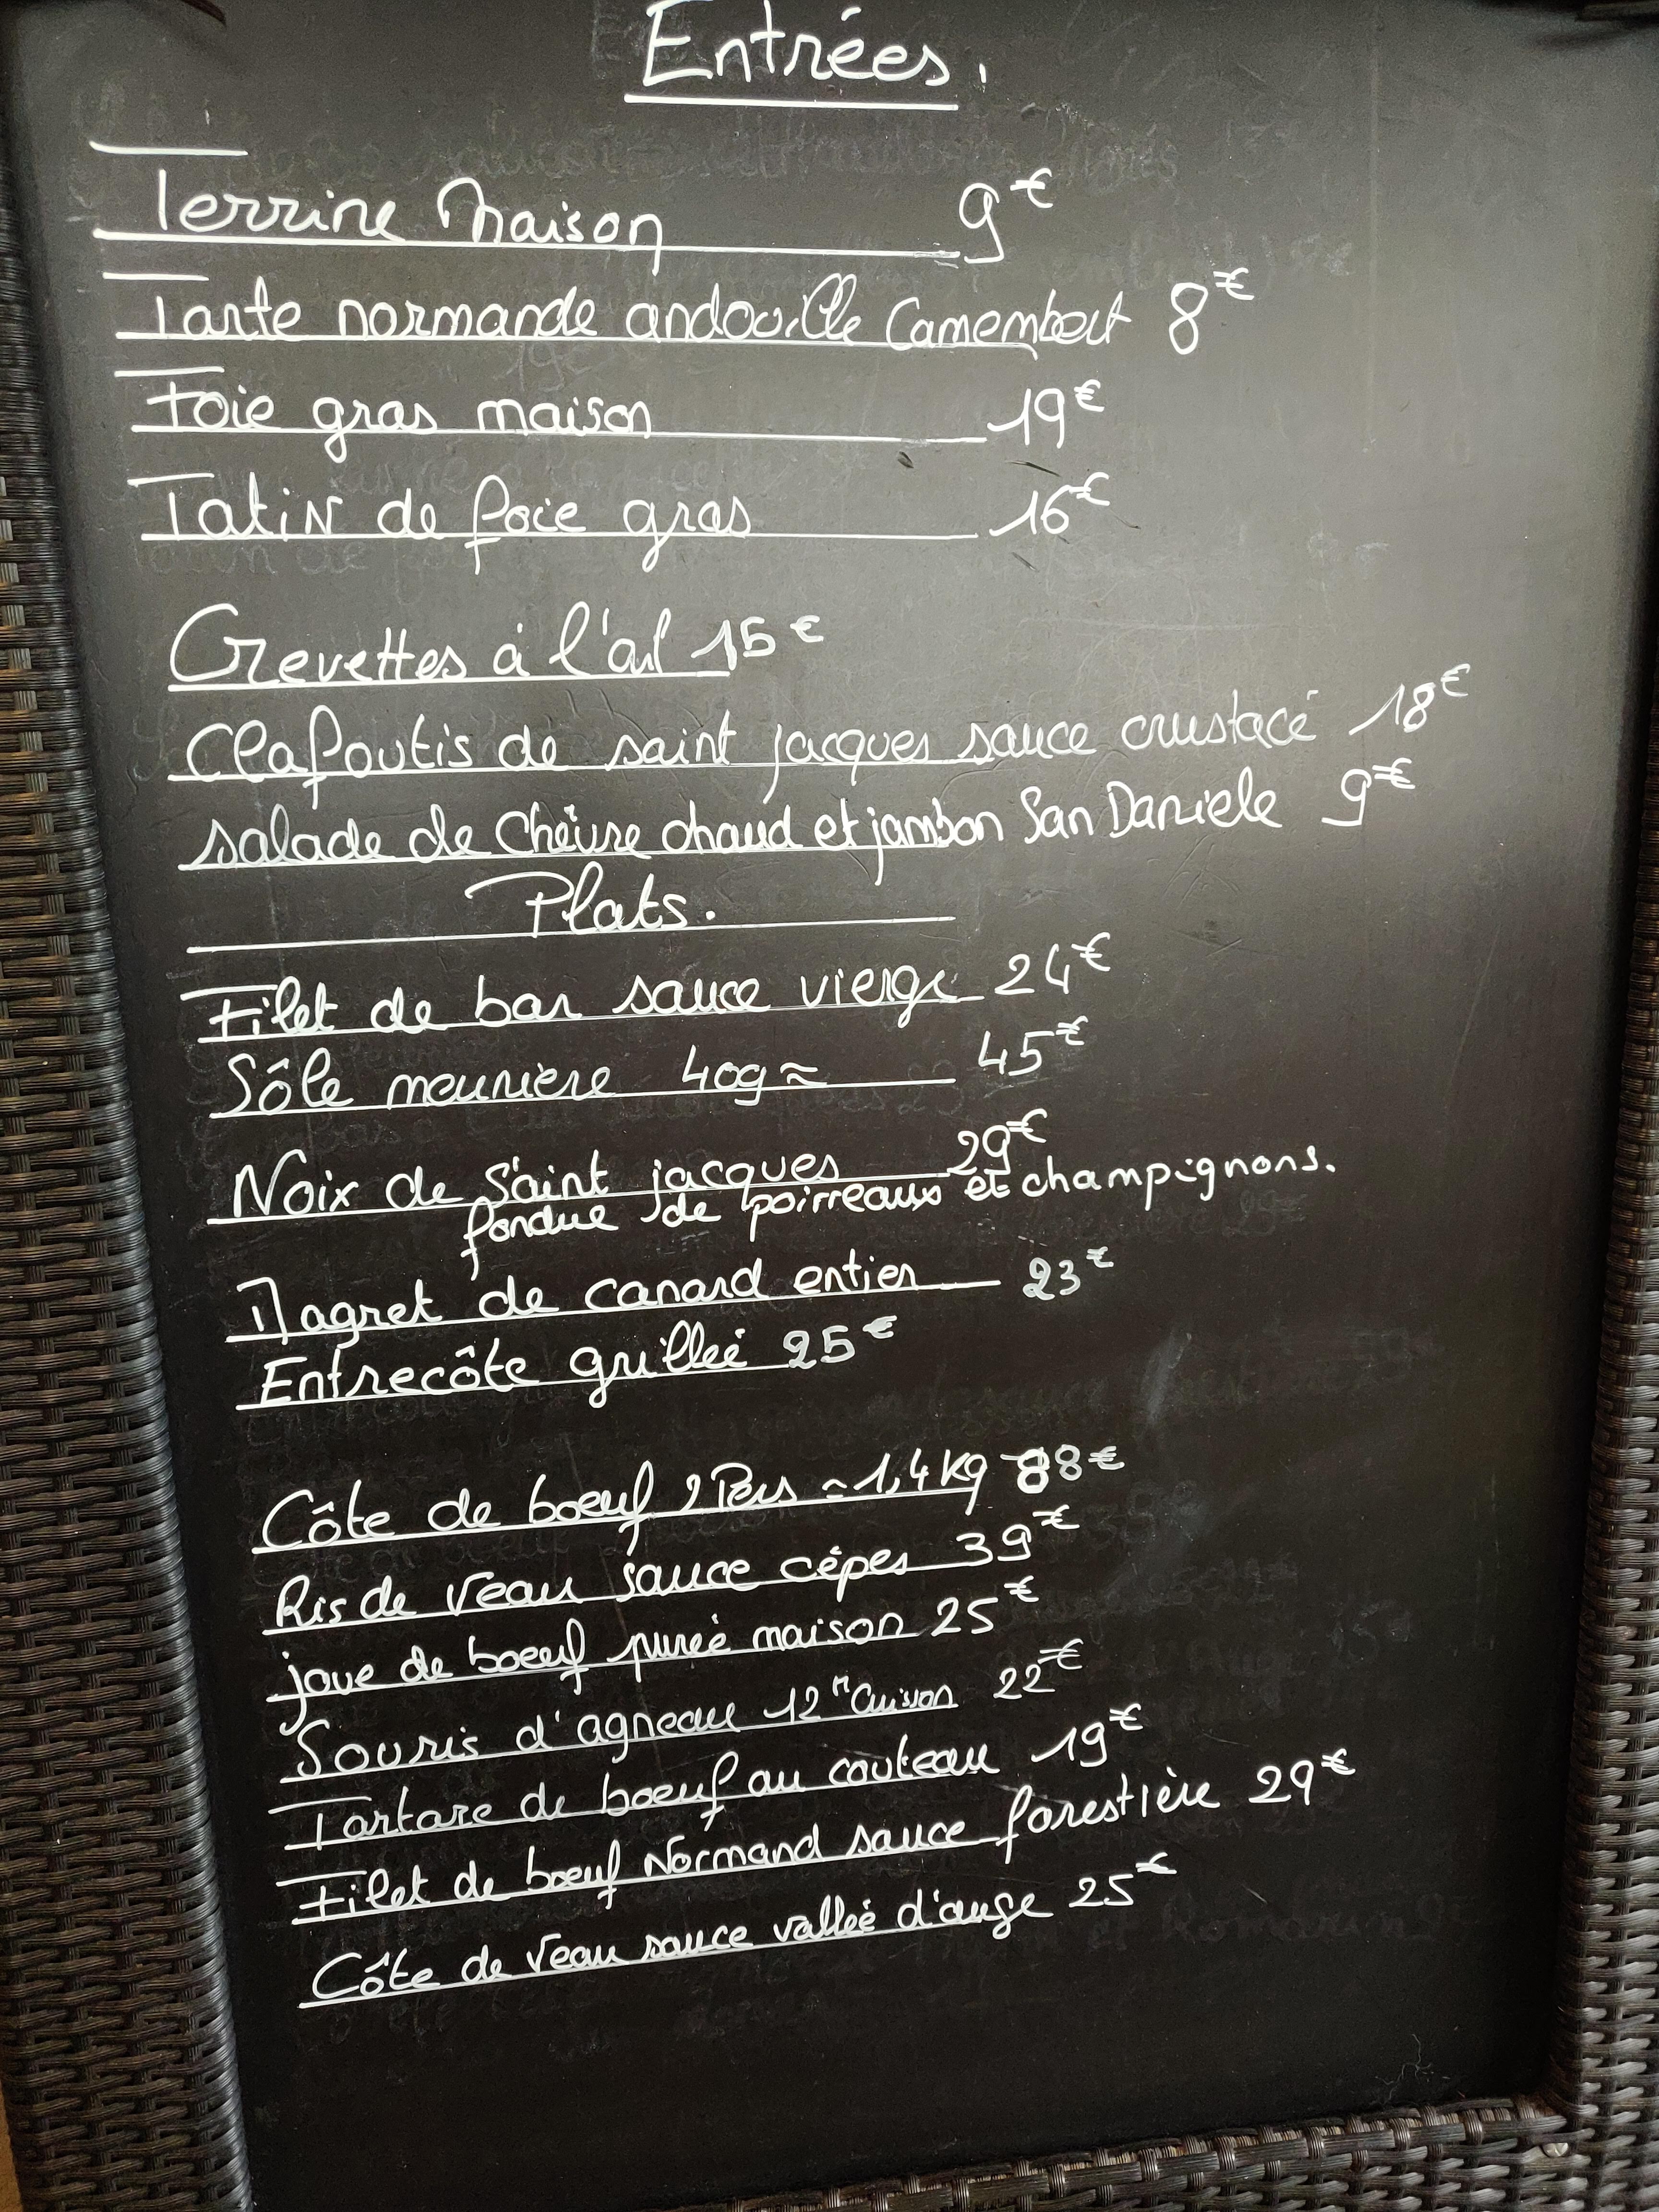 Entrées.
Terrine Maison 9€
Tarte normande andouille Camembert 8€
Foie gras maison 19€
Tatin de foie gras 16€
Crevettes à l'ail 15€
Clafoutis de saint jacques sauce crustacé 18€
salade de Chèvre chaud et jambon San Daniele 9€
Plats.
Filet de bar sauce vierge 24€
Sôle meunière 40g ≈ 45€
Noix de Saint jacques 29€
fondue de poirreaux et champignons.
Magret de canard entier 23€
Entrecôte grillée 25€
Côte de boeuf 2 Pers ≈ 1,4 Kg 88€
Ris de Veau sauce cépes 39€
joue de boeuf purée maison 25€
Souris d'agneau 12H Cuisson 22€
Tartare de boeuf au couteau 19€
Filet de boeuf Normand sauce forestière 29€
Côte de Veau sauce vallée d'auge 25€